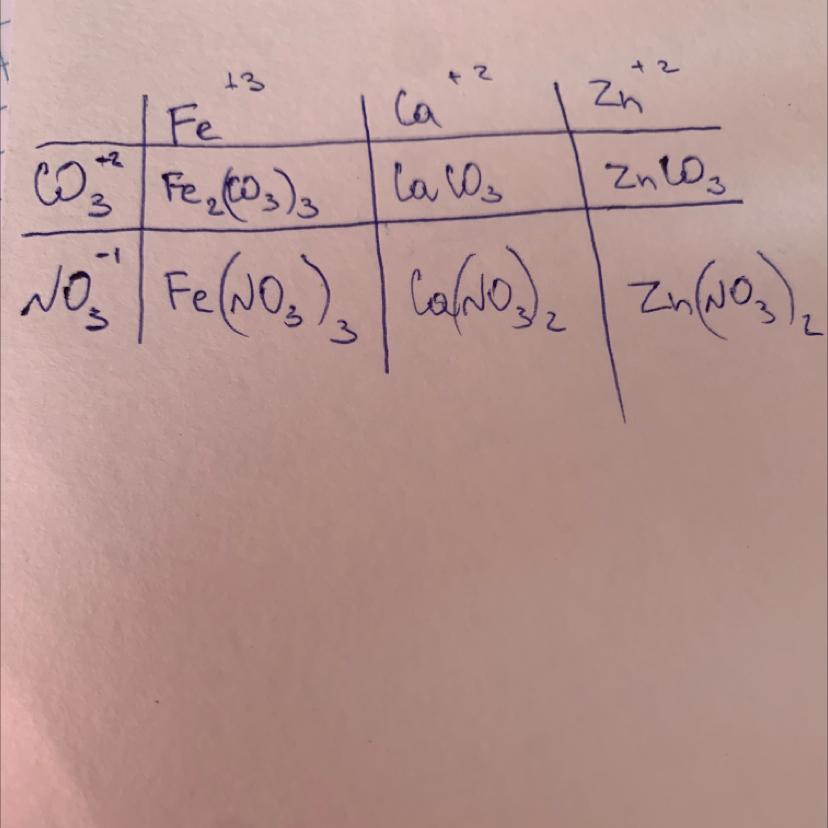 Fe +3 Ca +2 Zn +2
CO3 +2 Fe2(CO3)3 CaCO3 ZnCO3
NO3 -1 Fe(NO3)3 Ca(NO3)2 Zn(NO3)2